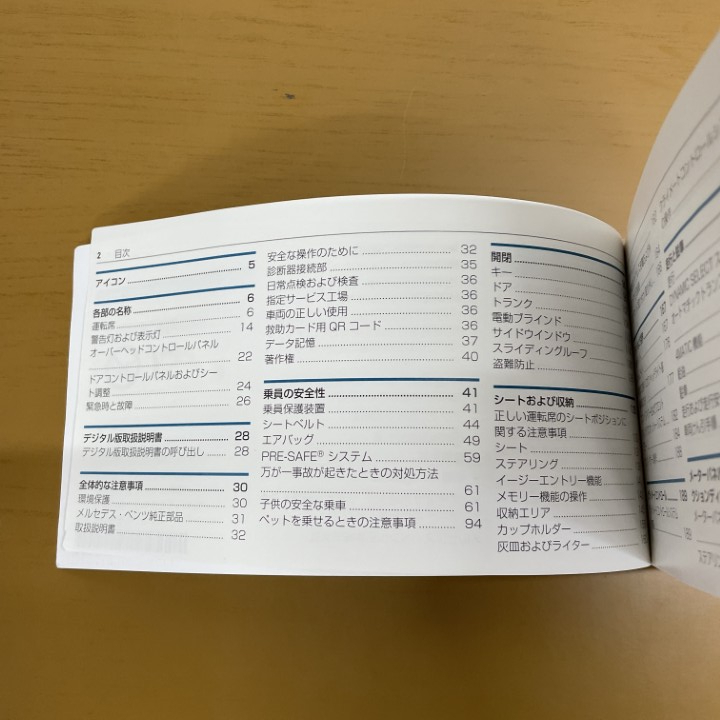 2 目次
アイコン 5
各部の名称 6
運転席 6
警告灯および表示灯 14
オーバーヘッドコントロールパネル
22
ドアコントロールパネルおよびシー
ト調整 24
緊急時と故障 26
デジタル版取扱説明書 28
デジタル版取扱説明書の呼び出し 28
全体的な注意事項 30
環境保護 30
メルセデス・ベンツ純正部品 31
取扱説明書 32
安全な操作のために 32
診断器接続部 35
日常点検および検査 36
指定サービス工場 36
車両の正しい使用 36
救助カード用 QR コード 36
データ記憶 37
著作権 40
乗員の安全性 41
乗員保護装置 41
シートベルト 44
エアバッグ 49
PRE-SAFE® システム 59
万が一事故が起きたときの対処方法
61
子供の安全な乗車 61
ペットを乗せるときの注意事項 94
開閉
キー
ドア
トランク
電動ブラインド
サイドウインドウ
スライディングルーフ
盗難防止
シートおよび収納
正しい運転席のシートポジションに
関する注意事項
シート
ステアリング
イージーエントリー機能
メモリー機能の操作
収納エリア
カップホルダー
灰皿およびライター
DYNAMIC SELECT